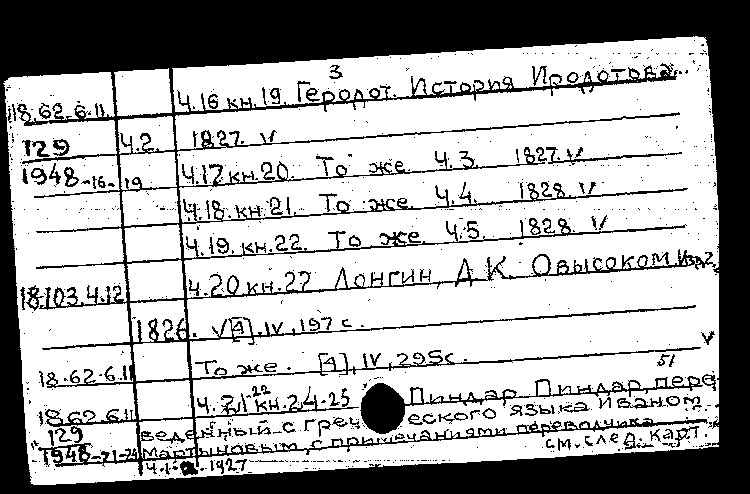 3
18.62.6.11 Ч.16 кн.19. Геродот. История Иродотова..
129 Ч.2. 1827. V
1948-16-19 Ч.17 кн.20. То же. Ч.3. 1827. V
Ч.18. кн.21. То же. Ч.4. 1828. V
Ч.19. кн.22. То же. Ч.5. 1828. V
18.103.4.12 Ч.20 кн.27 Лонгин, Д К. О высоком. Изд 2,
1826. V[4].IV, 197 с.
V
18.62.6.11 То же. [4], IV, 295 с.
51
22
18.62.6.11 Ч.21 кн.24-25 Пиндар Пиндар, пере
129 веденный с греческого языка Иваном
1948-21-24 Мартыновым, с примечаниями переводчика
Ч.1 1827 см. след. карт.